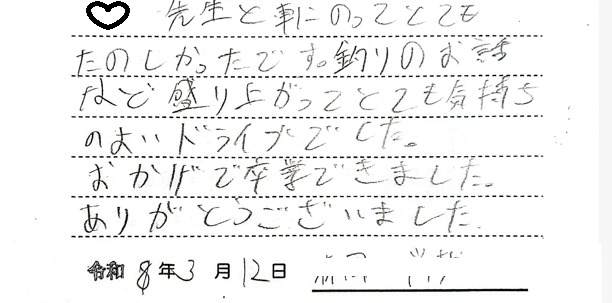 ♡ 先生と車にのってとても
たのしかったです。釣りのお話
など盛り上がってとても気持ち
のよいドライブでした。
おかげで卒業できました。
ありがとうございました.
令和 8年3月12日